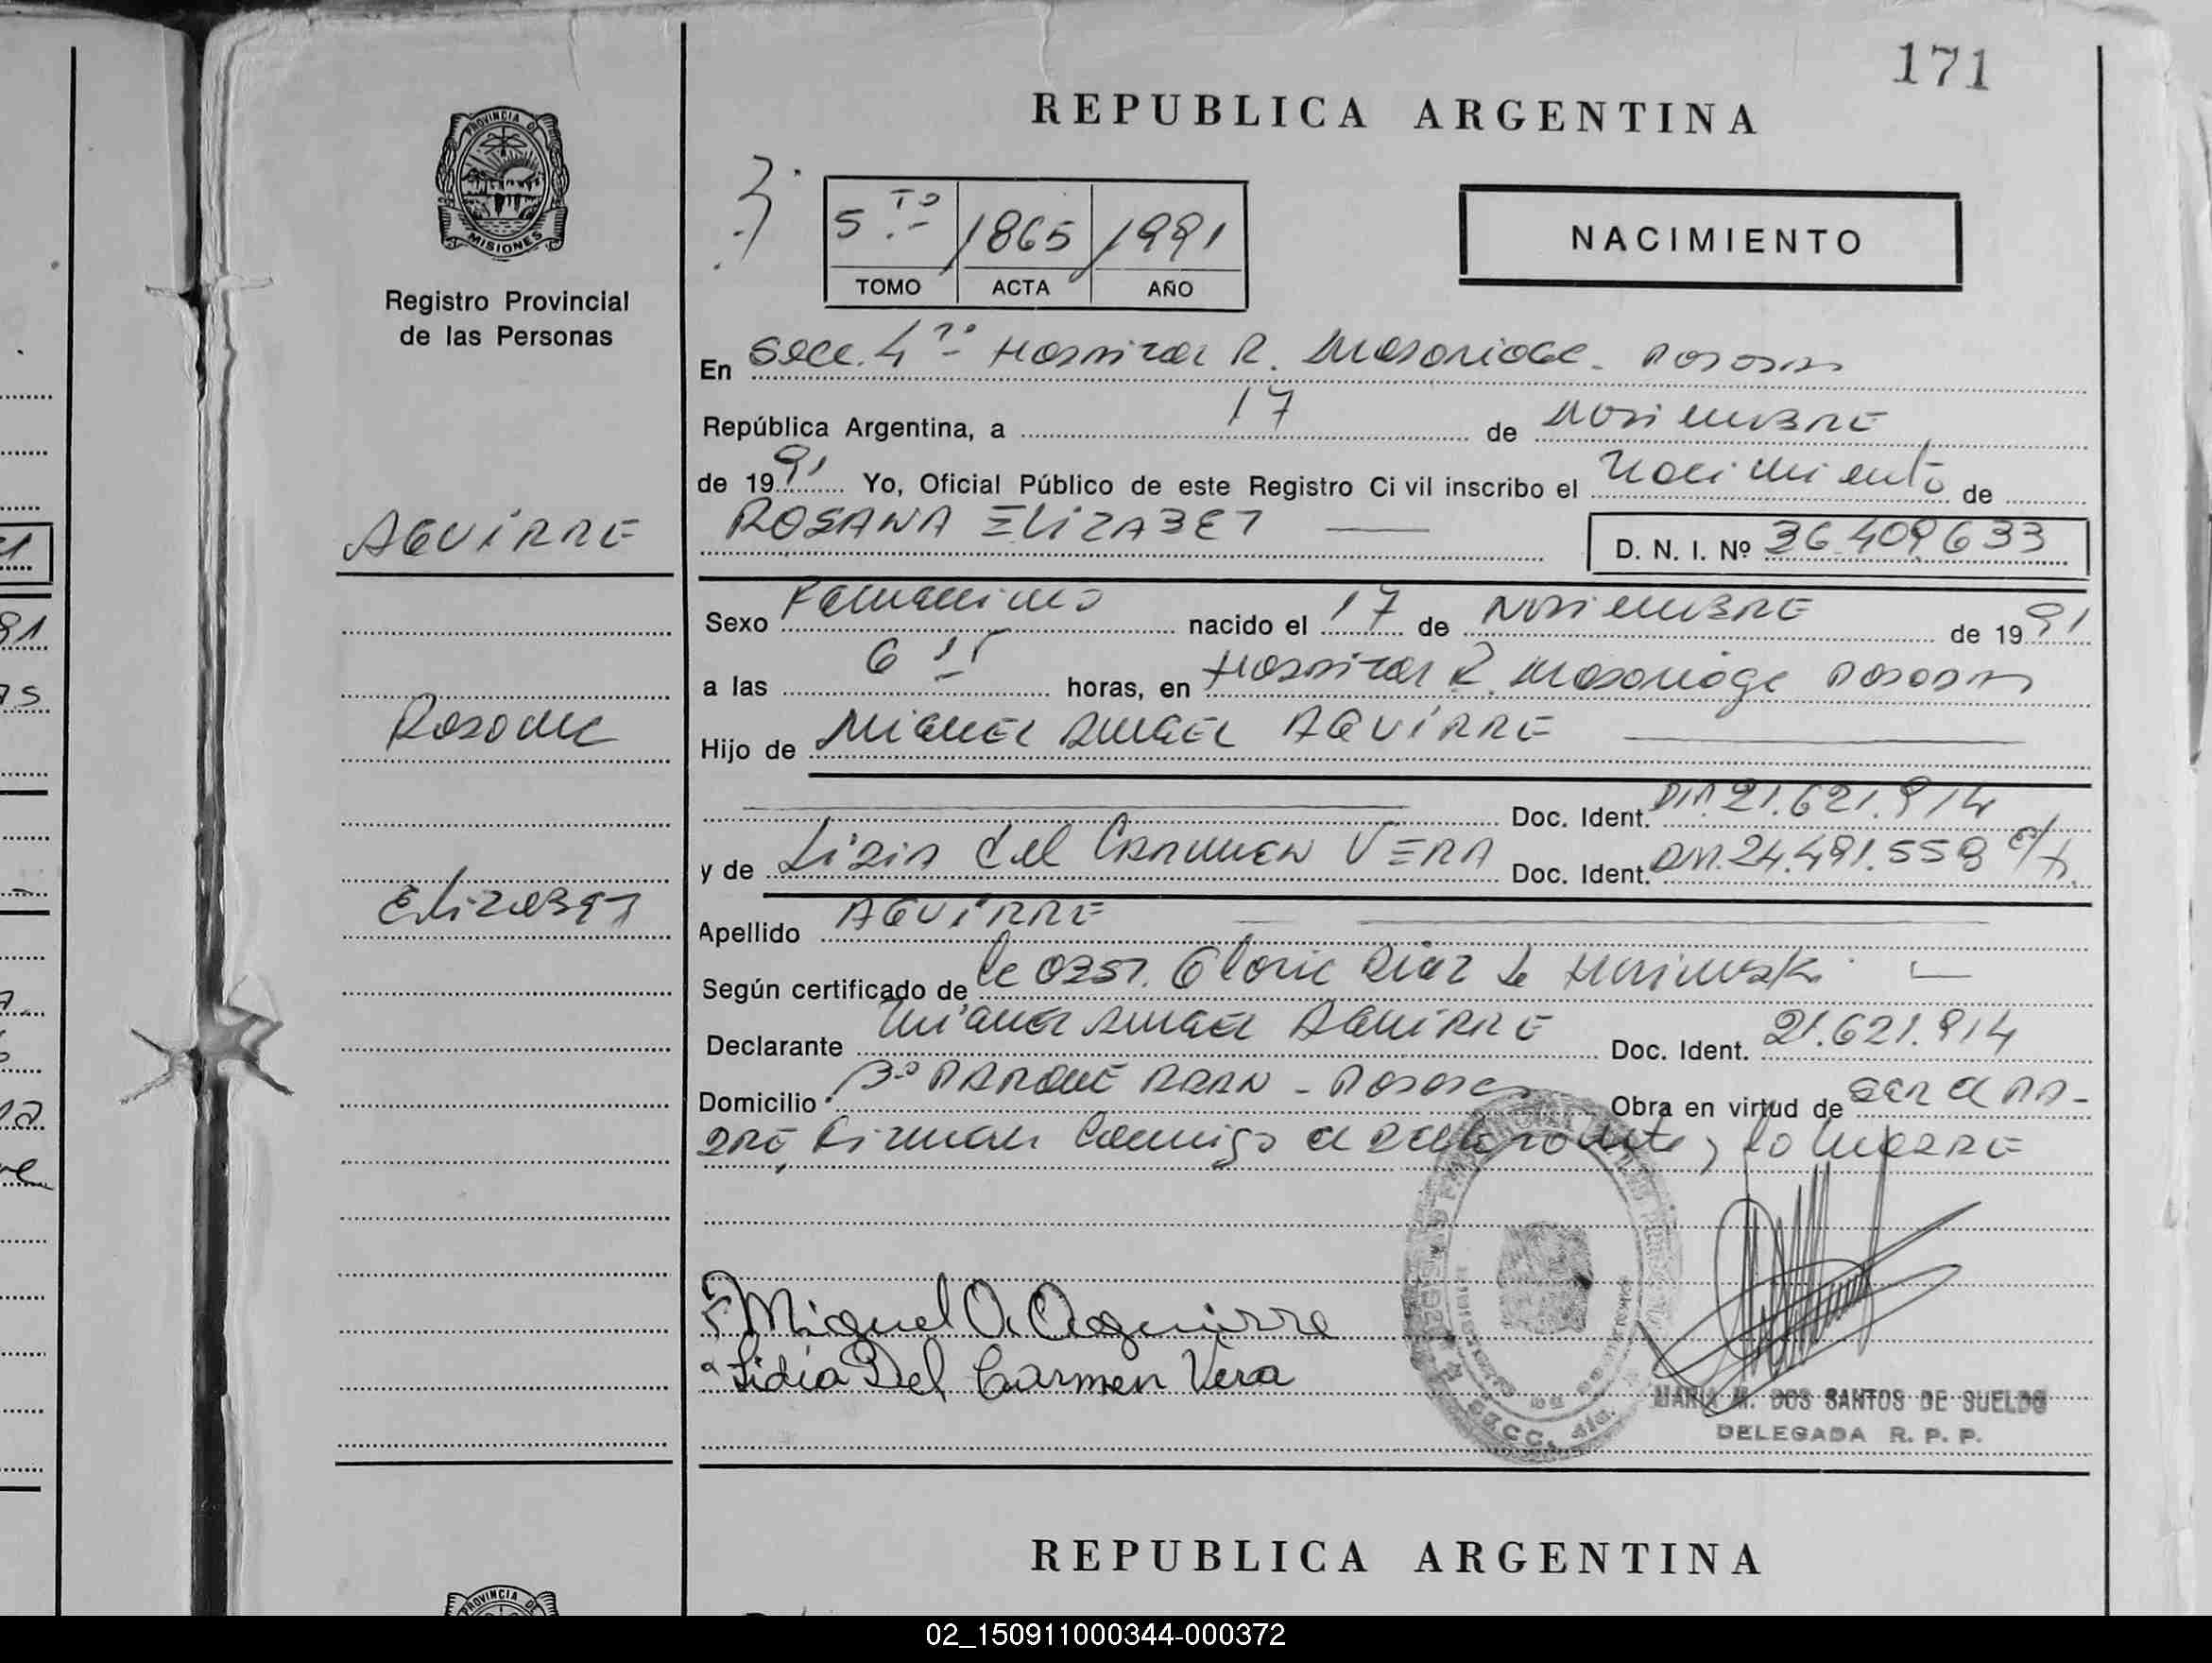 171
REPUBLICA ARGENTINA
PROVINCIA DE
MISIONES
Registro Provincial
de las Personas
5 TO .- 1865 1991
TOMO ACTA AÑO
NACIMIENTO
En Secc. 4ta Hospital R. Madariaga. Posadas
República Argentina, a 17 de Noviembre
de 1991 Yo, Oficial Público de este Registro Civil inscribo el Nacimiento de
AGUIRRE
ROSANA ELIZABET
D. N. I. Nº 36.409.633
Sexo Femenino nacido el 17 de NOVIEMBRE de 1991
a las 6 15 horas, en Hospital R. Madariaga Posadas
Rosana
Hijo de MIGUEL ANGEL AGUIRRE
Doc. Ident. DNI 21.621.914
y de Lidia del Carmen VERA Doc. Ident. DNI. 24.491.558
Elizabet
Apellido AGUIRRE
Según certificado de la Obst. Gloria Diaz de
Declarante Miguel Angel AGUIRRE Doc. Ident. 21.621.914
Domicilio Bº PARQUE ADAM - Posadas Obra en virtud de ser el PA-
DRE, Firman conmigo el declarante y la MADRE
Miguel A. Aguirre
Lidia Del Carmen Vera
SECC. 4ta.
MARIA M. DOS SANTOS DE SUELDO
DELEGADA R. P. P.
REPUBLICA ARGENTINA
PROVINCIA DE
02_150911000344-000372